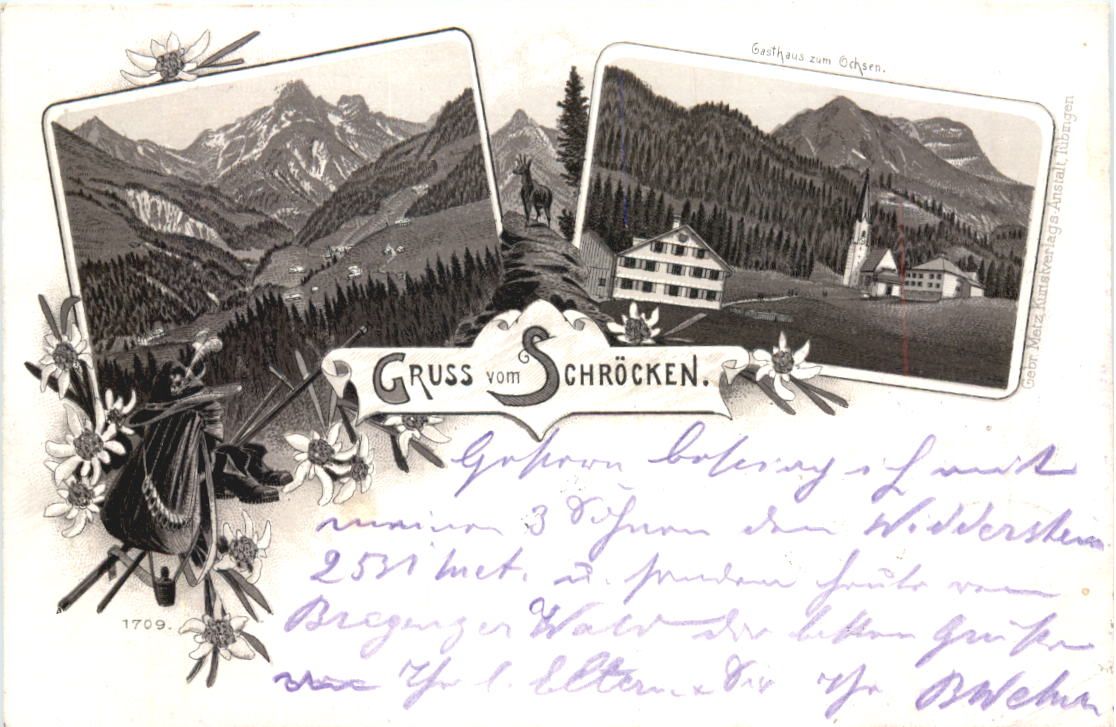 Gasthaus zum Ochsen.
Gebr. Metz, Kunstverlags-Anstalt, Tübingen
GRUSS vom SCHRÖCKEN.
1709.
Gestern bestieg ich mit
meinen 3 Söhnen den Widderstein
25 met. u. senden heute vom
Bregenzer Wald die besten Grüße
Ihr l. Eltern Sie Ihr